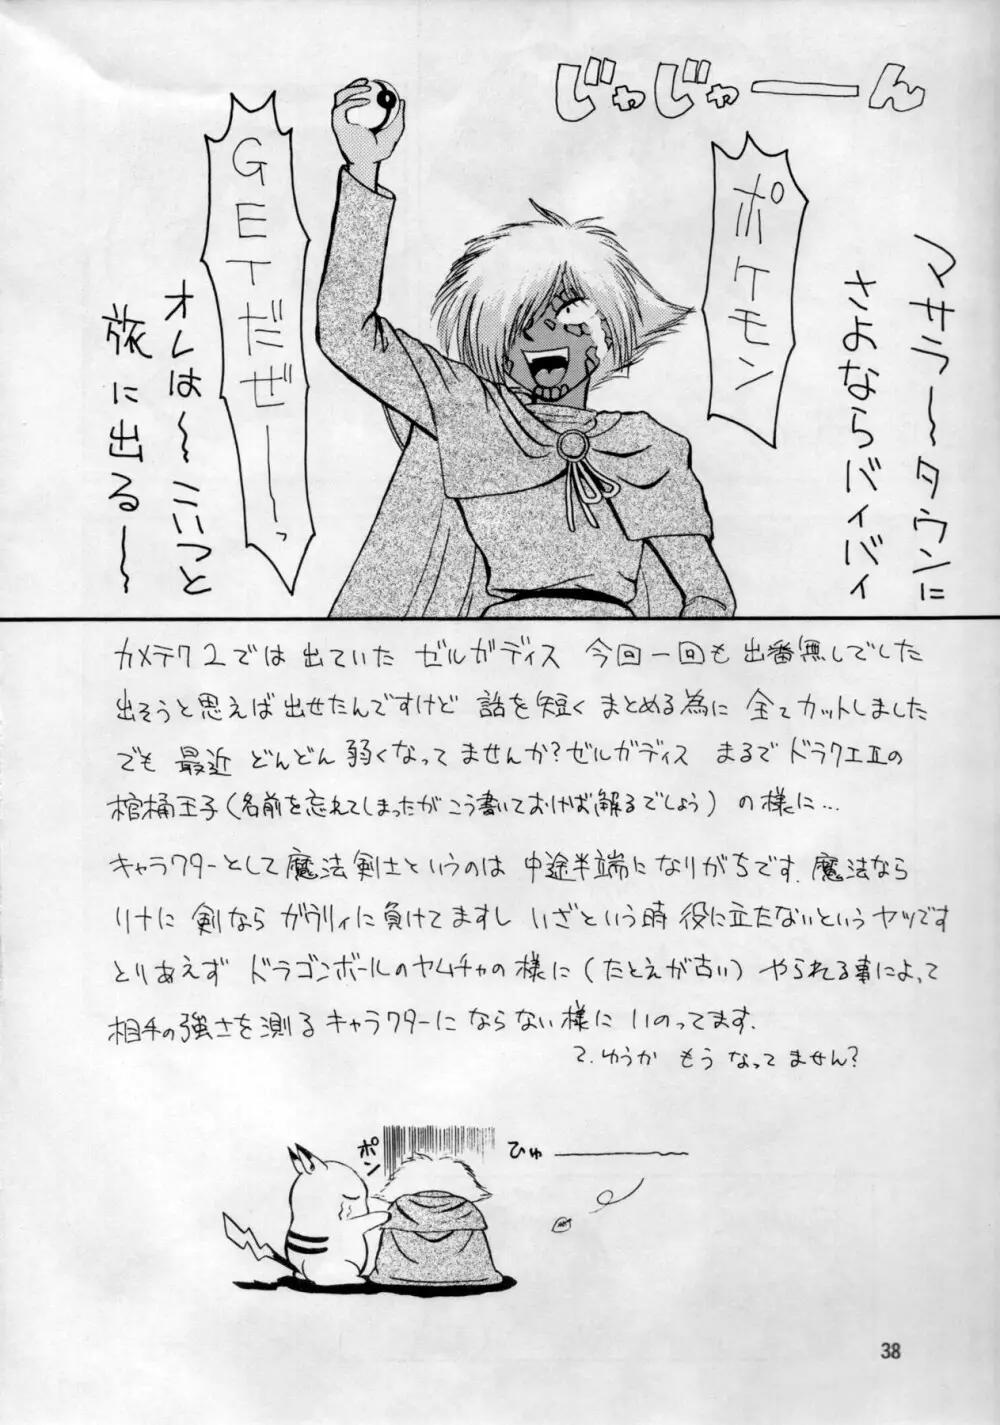 じゃじゃーん
ポケモン
GETだぜーーっ
マサラ〜タウンに
さよならバイバイ
オレは〜こいつと
旅に出る〜
カメテク2では出ていたゼルガディス 今回一回も出番無しでした
出そうと思えば出せたんですけど 話を短くまとめる為に全てカットしました
でも 最近 どんどん弱くなってませんか?ゼルガディス まるでドラクエⅡの
棺桶王子(名前を忘れてしまったがこう書いておけば解るでしょう)の様に…
キャラクターとして魔法剣士というのは 中途半端になりがちです.魔法なら
リナに 剣なら ガウリィに負けてますし いざという時 役に立たないというヤツです
とりあえず ドラゴンボールのヤムチャの様に(たとえが古い) やられる事によって
相手の強さを測るキャラクターにならない様に いのってます.
て.ゆうか もう なってません?
ポン
ひゅーーー
38